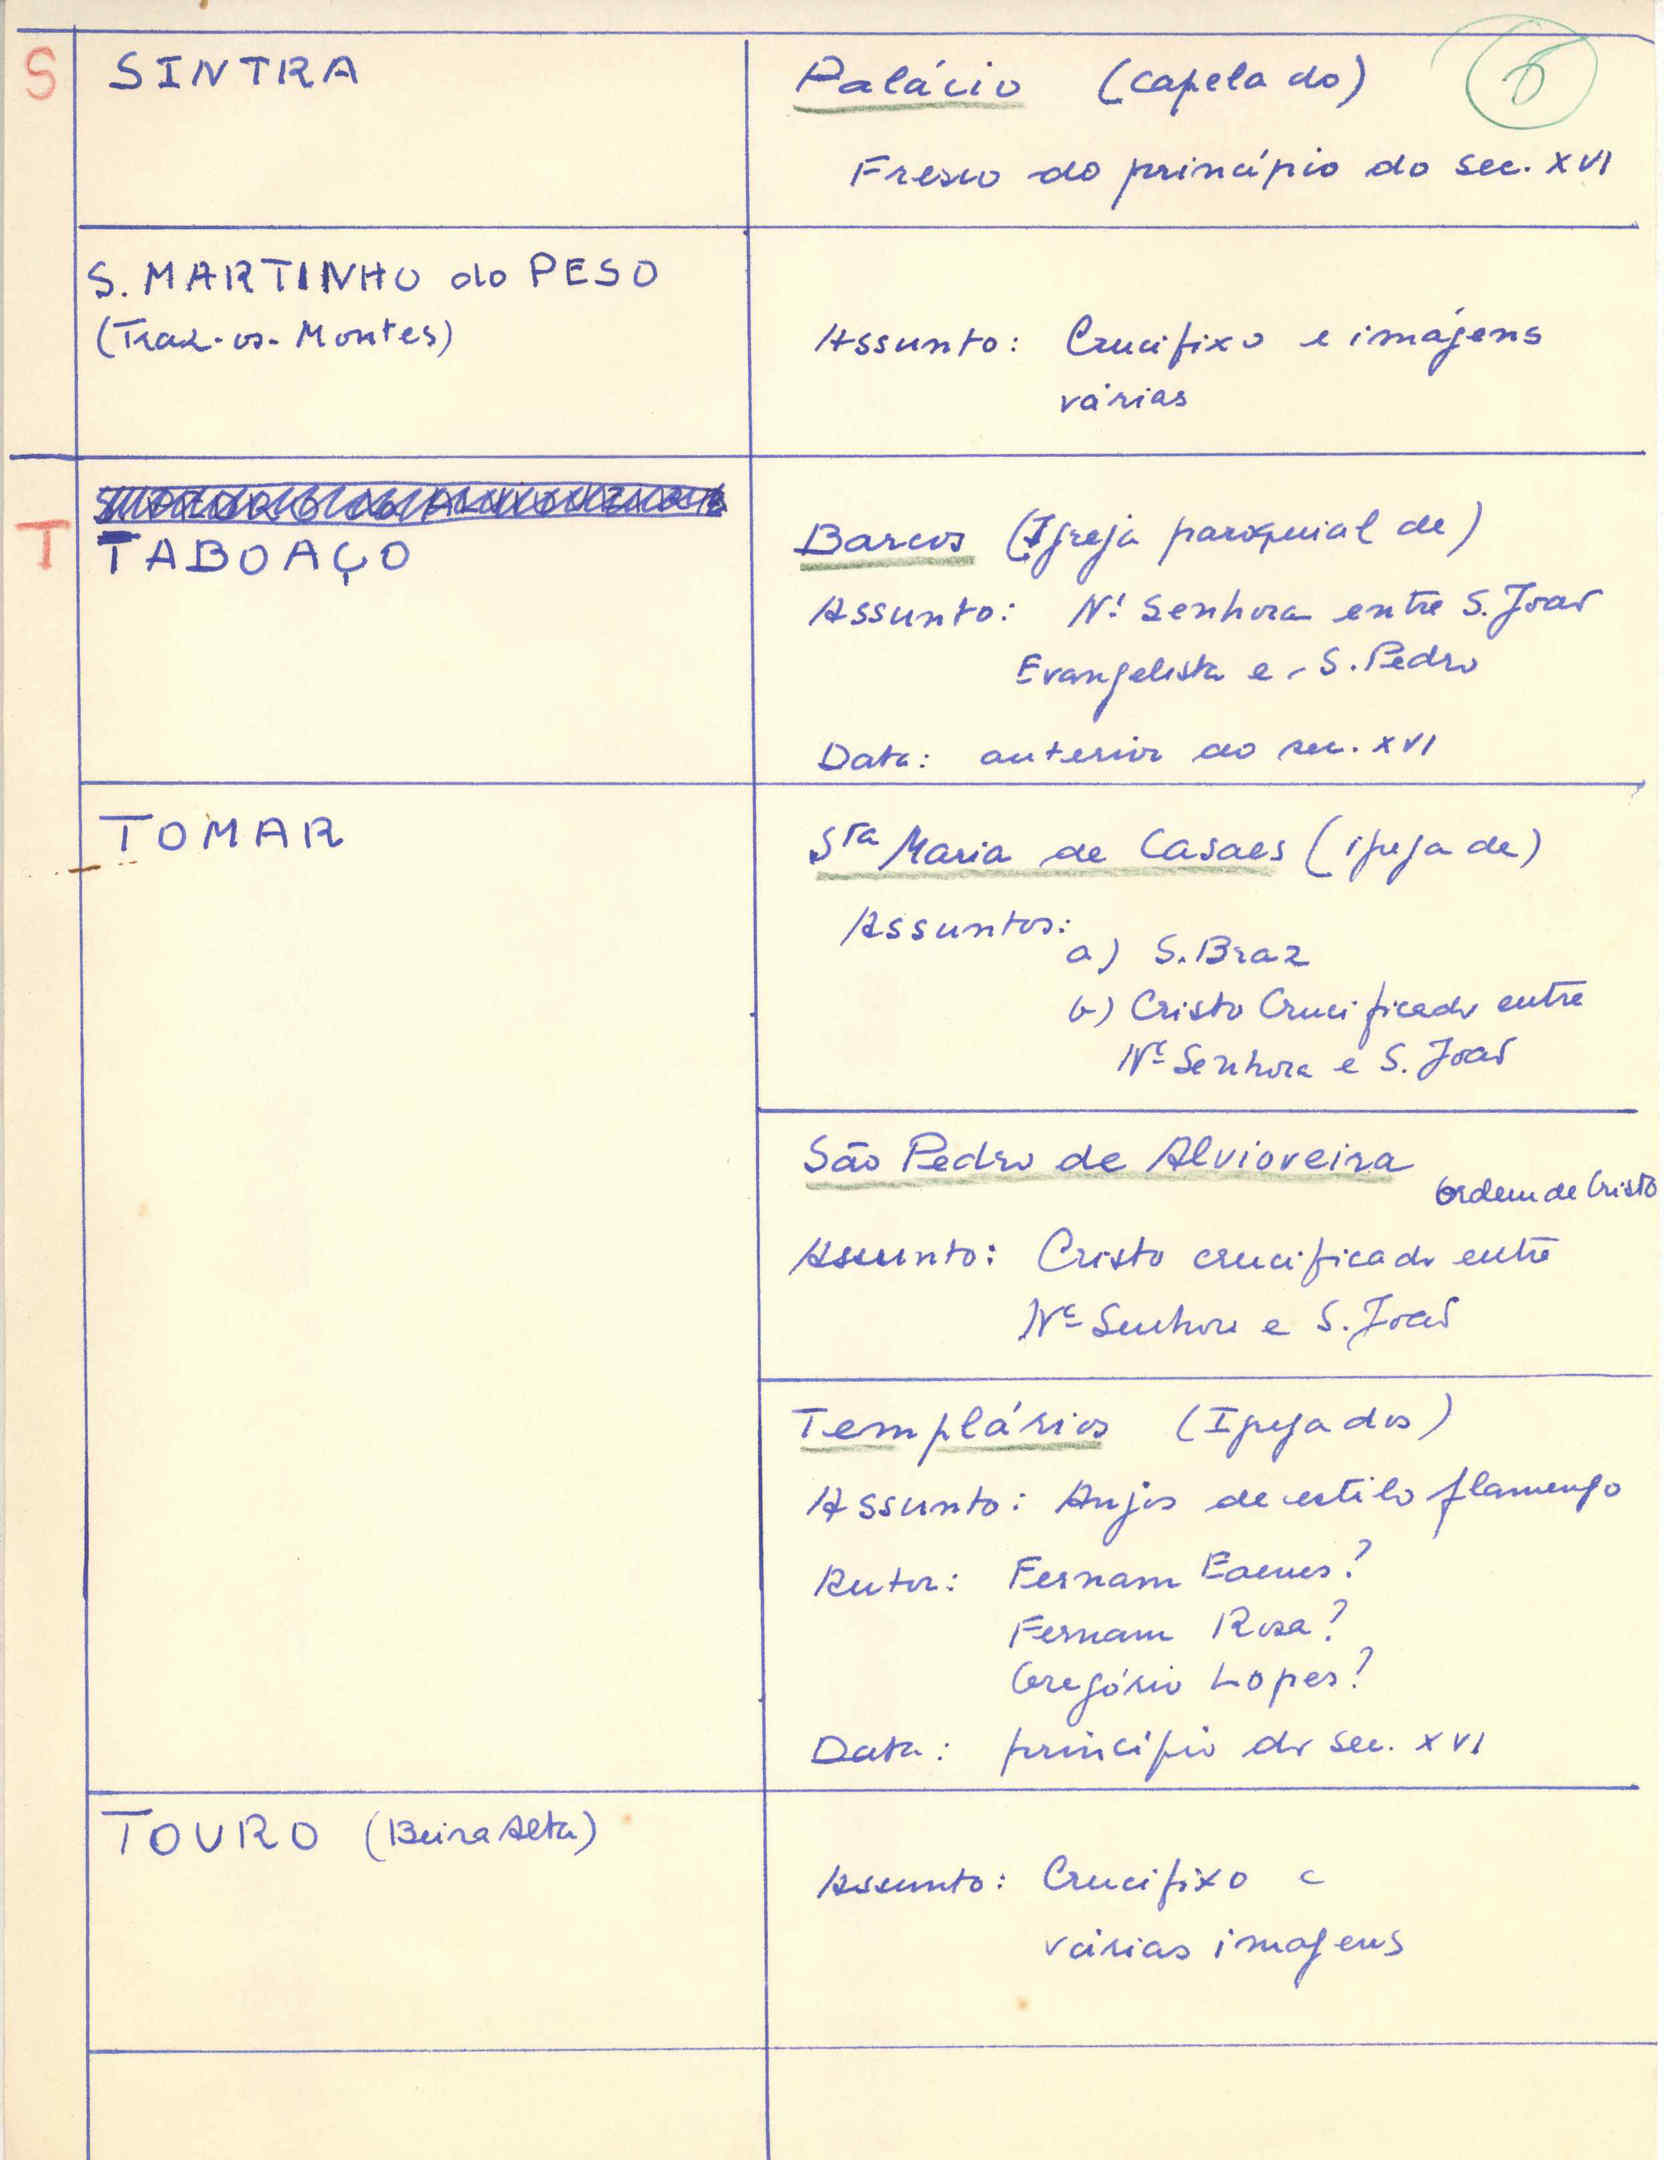 S
SINTRA
Palácio (capela do)
Fresco do princípio do sec. XVI
S. MARTINHO do PESO
(Traz-os-Montes)
Assunto: Crucifixo e imágens
várias
T
TABOAÇO
Barcos (Igreja paroquial de)
Assunto: Nª Senhora entre S. João
Evangelista e S. Pedro
Data: anterior ao sec. XVI
TOMAR
Sta Maria de Casaes (igreja de)
Assuntos:
a) S. Braz
b) Cristo Crucificado entre
Nª Senhora e S. João
São Pedro de Alvioveira
ordem de Cristo
Assunto: Cristo crucificado entre
Nª Senhora e S. João
Templários (Igreja dos)
Assunto: Anjos de estilo flamengo
Autor: Fernam Eanes?
Fernam Rosa?
Gregório Lopes?
Data: princípio do sec. XVI
TOURO (Beira Alta)
Assunto: Crucifixo e
várias imagens